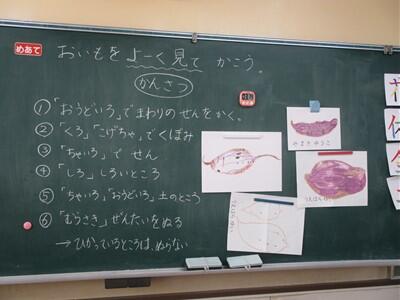 めあて
おいもを よーく見て かこう。
かんさつ
①「おうどいろ」でまわりのせんをかく。
②「くろ」「こげちゃ」でくぼみ
③「ちゃいろ」で せん
④「しろ」しろいところ
⑤「ちゃいろ」「おうどいろ」土のところ
⑥「むらさき」ぜんたいをぬる
→ひかっているところは、ぬらない